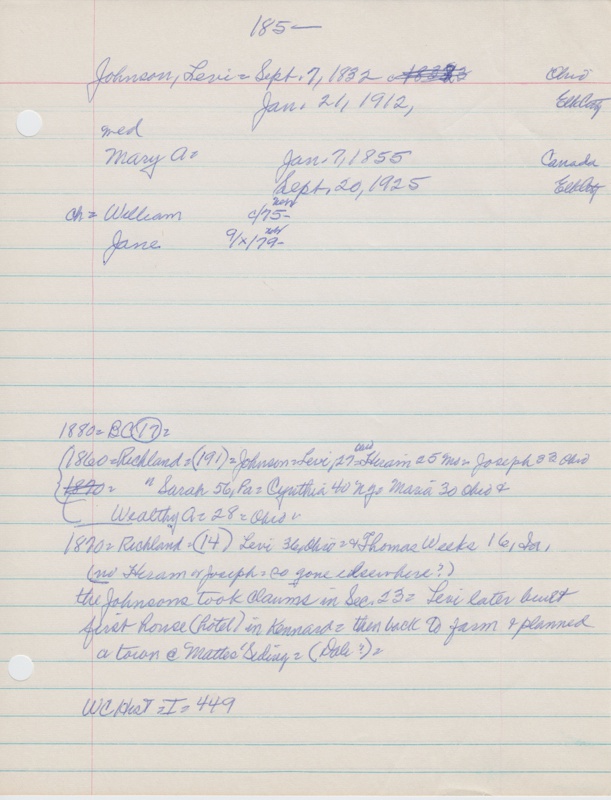 185—
Johnson, Levi = Sept. 7, 1832 Ohio
Jan. 21, 1912, Elk City
med
Mary A = Jan. 7, 1855 Canada
Sept. 20, 1925 Elk City
ch = William c/75- nebr
Jane 9/x/79- nebr
1880 = BC (17) =
1860 = Richland = (191) = Johnson = Levi, 27 = Ohio Hiram 25 mo = Joseph 23 Ohio
1870 = " Sarah 56, Pa = Cynthia 40 n go Maria 30 Ohio &
Wealthy A = 28 = Ohio
1870 = Richland = (14) Levi 36, Ohio = & Thomas Weeks 16, Ia,
(no Hiram or Joseph = so gone elsewhere?)
the Johnsons took claims in Sec. 23 = Levi later built
first house (hotel) in Kennard = then back to farm & planned
a town @ Mattes' Siding = (Dale?) =
WC Hist = I = 449